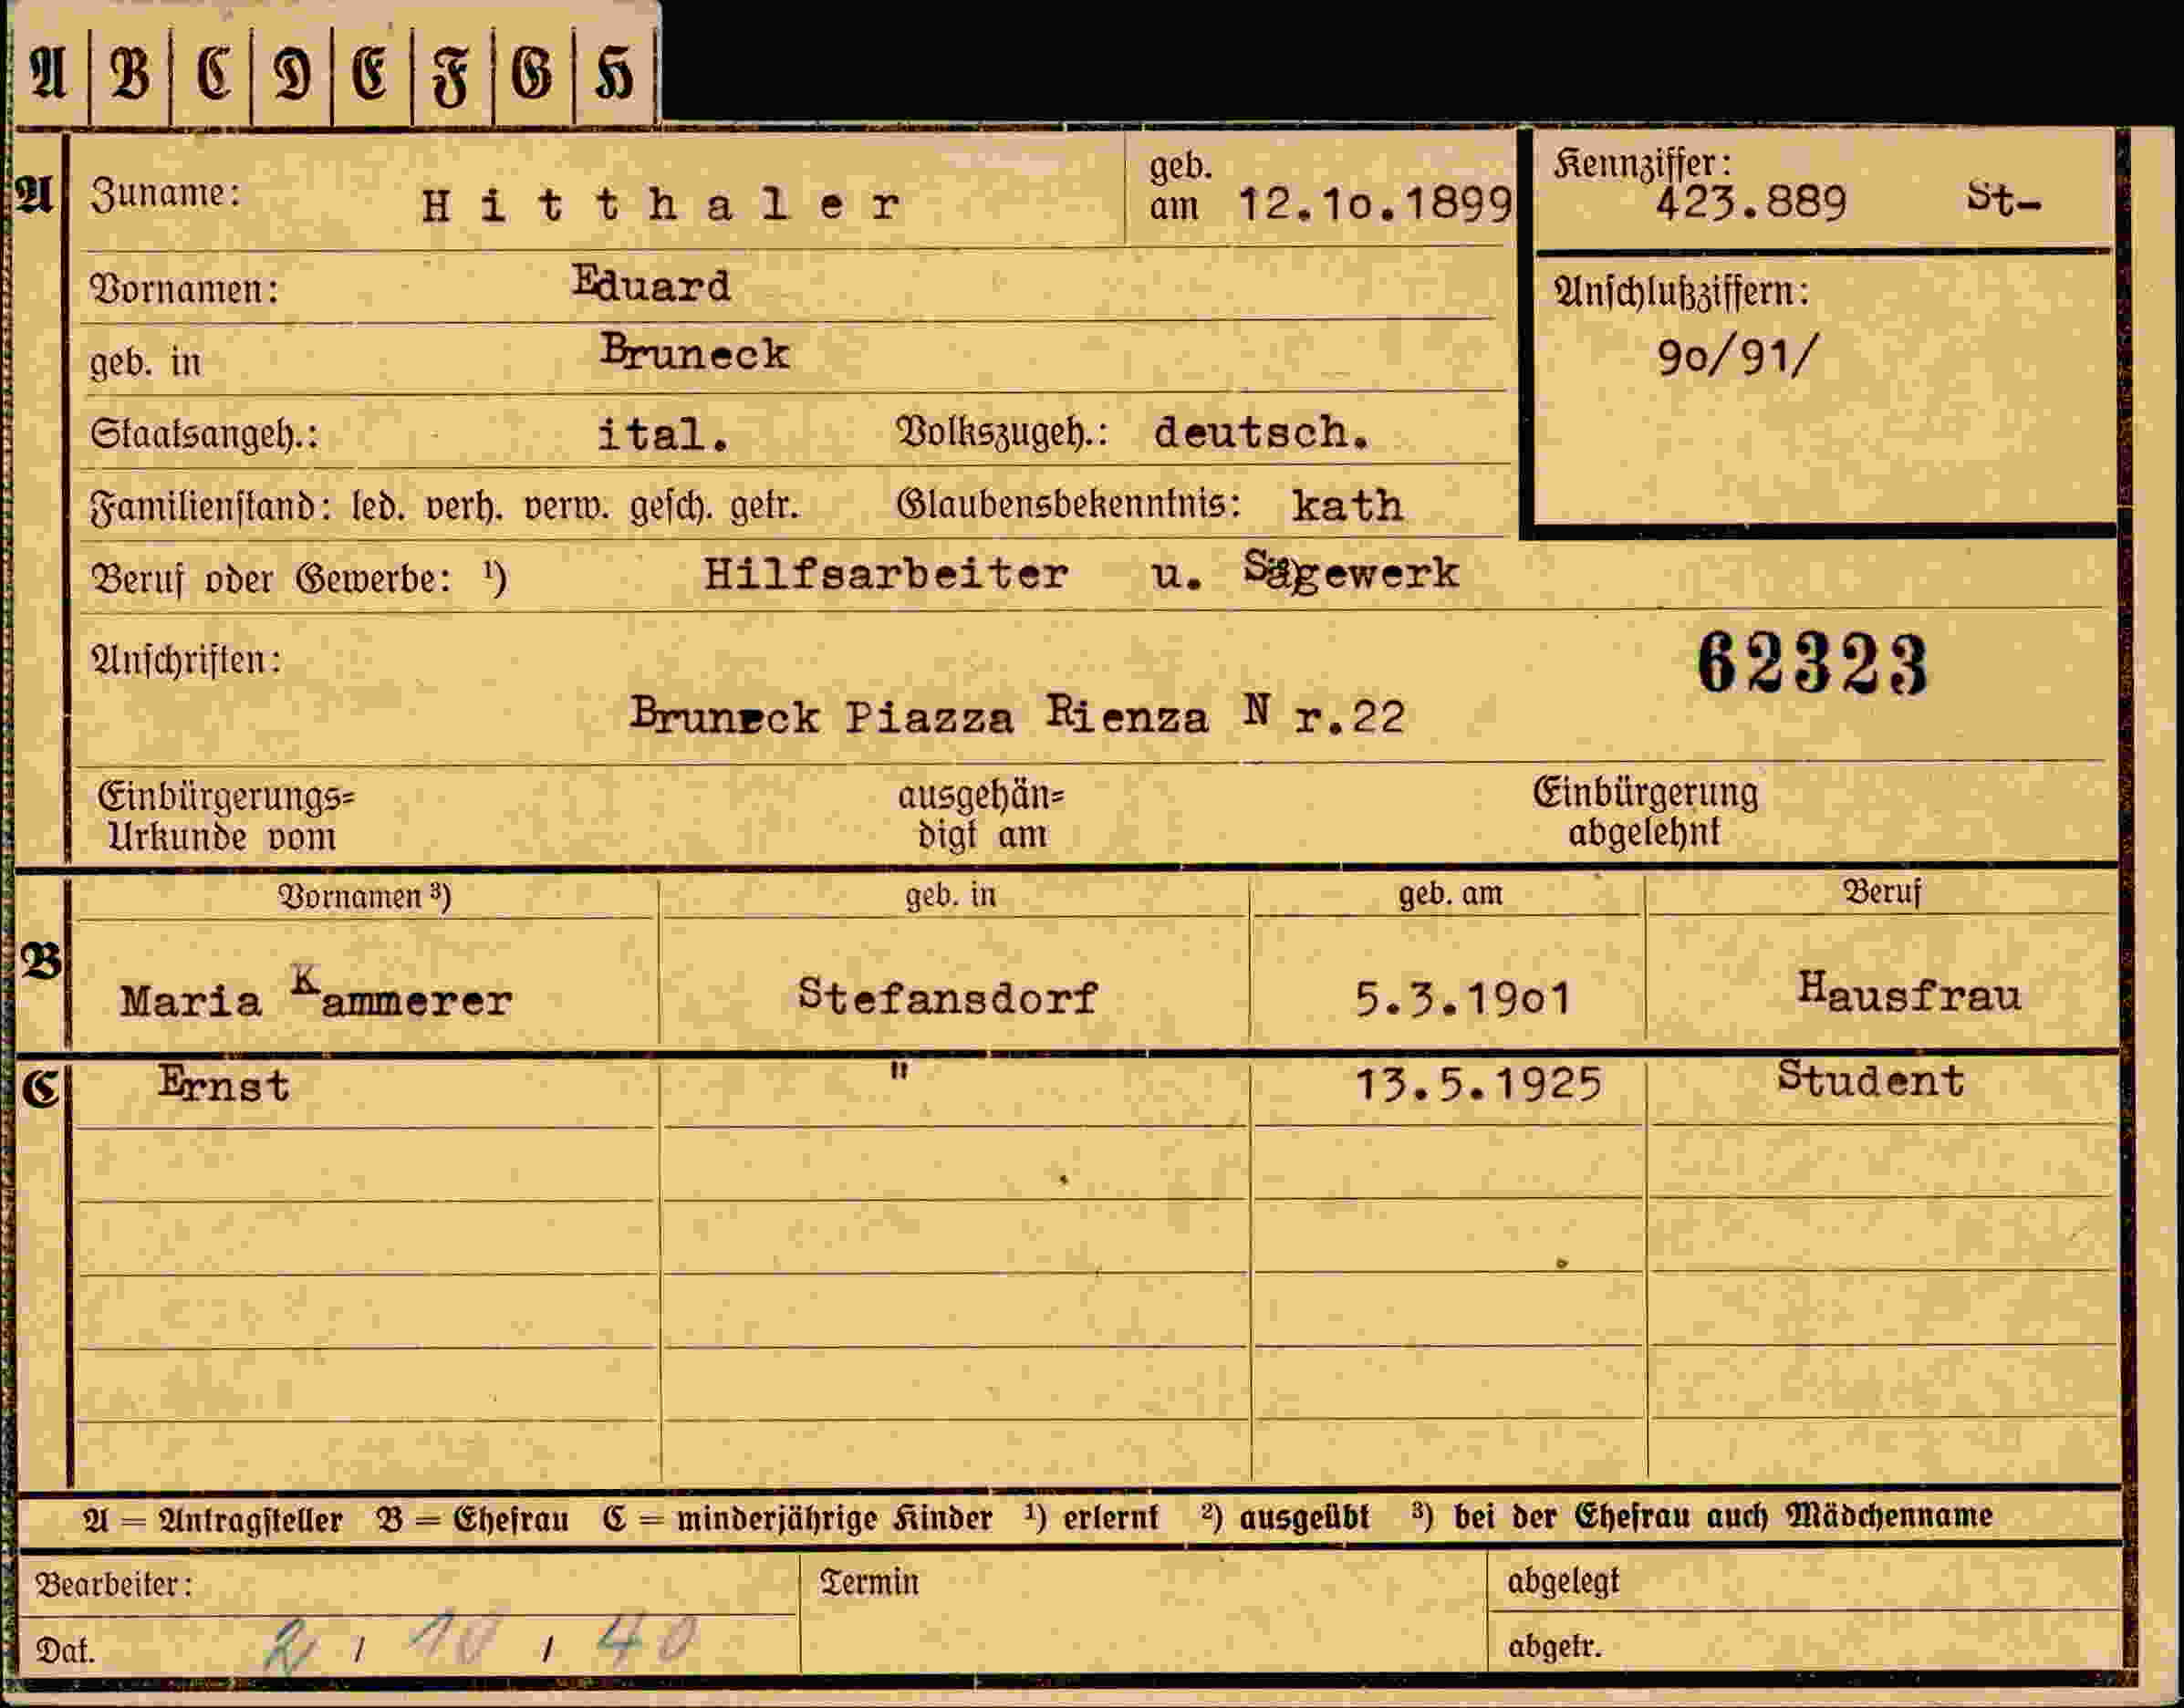 A B C D E F G H
A Zuname: Hitthaler geb. am 12.1o.1899 Kennziffer: 423.889 St-
Vornamen: Eduard Anschlußziffern:
geb. in Bruneck 9o/91/
Staatsangeh.: ital. Volkszugeh.: deutsch.
Familienstand: led. verh. verw. gesch. getr. Glaubensbekenntnis: kath
Beruf oder Gewerbe: ¹) Hilfsarbeiter u. Sägewerk
Anschriften: 62323
Bruneck Piazza Rienza N r.22
Einbürgerungs= ausgehän= Einbürgerung
Urkunde vom digt am abgelehnt
Vornamen ³) geb. in geb. am Beruf
B Maria Kammerer Stefansdorf 5.3.19o1 Hausfrau
C Ernst " 13.5.1925 Student
A = Antragsteller B = Ehefrau C = minderjährige Kinder ¹) erlernt ²) ausgeübt ³) bei der Ehefrau auch Mädchenname
Bearbeiter: Termin abgelegt
Dat. 2 / 10 / 40 abgetr.